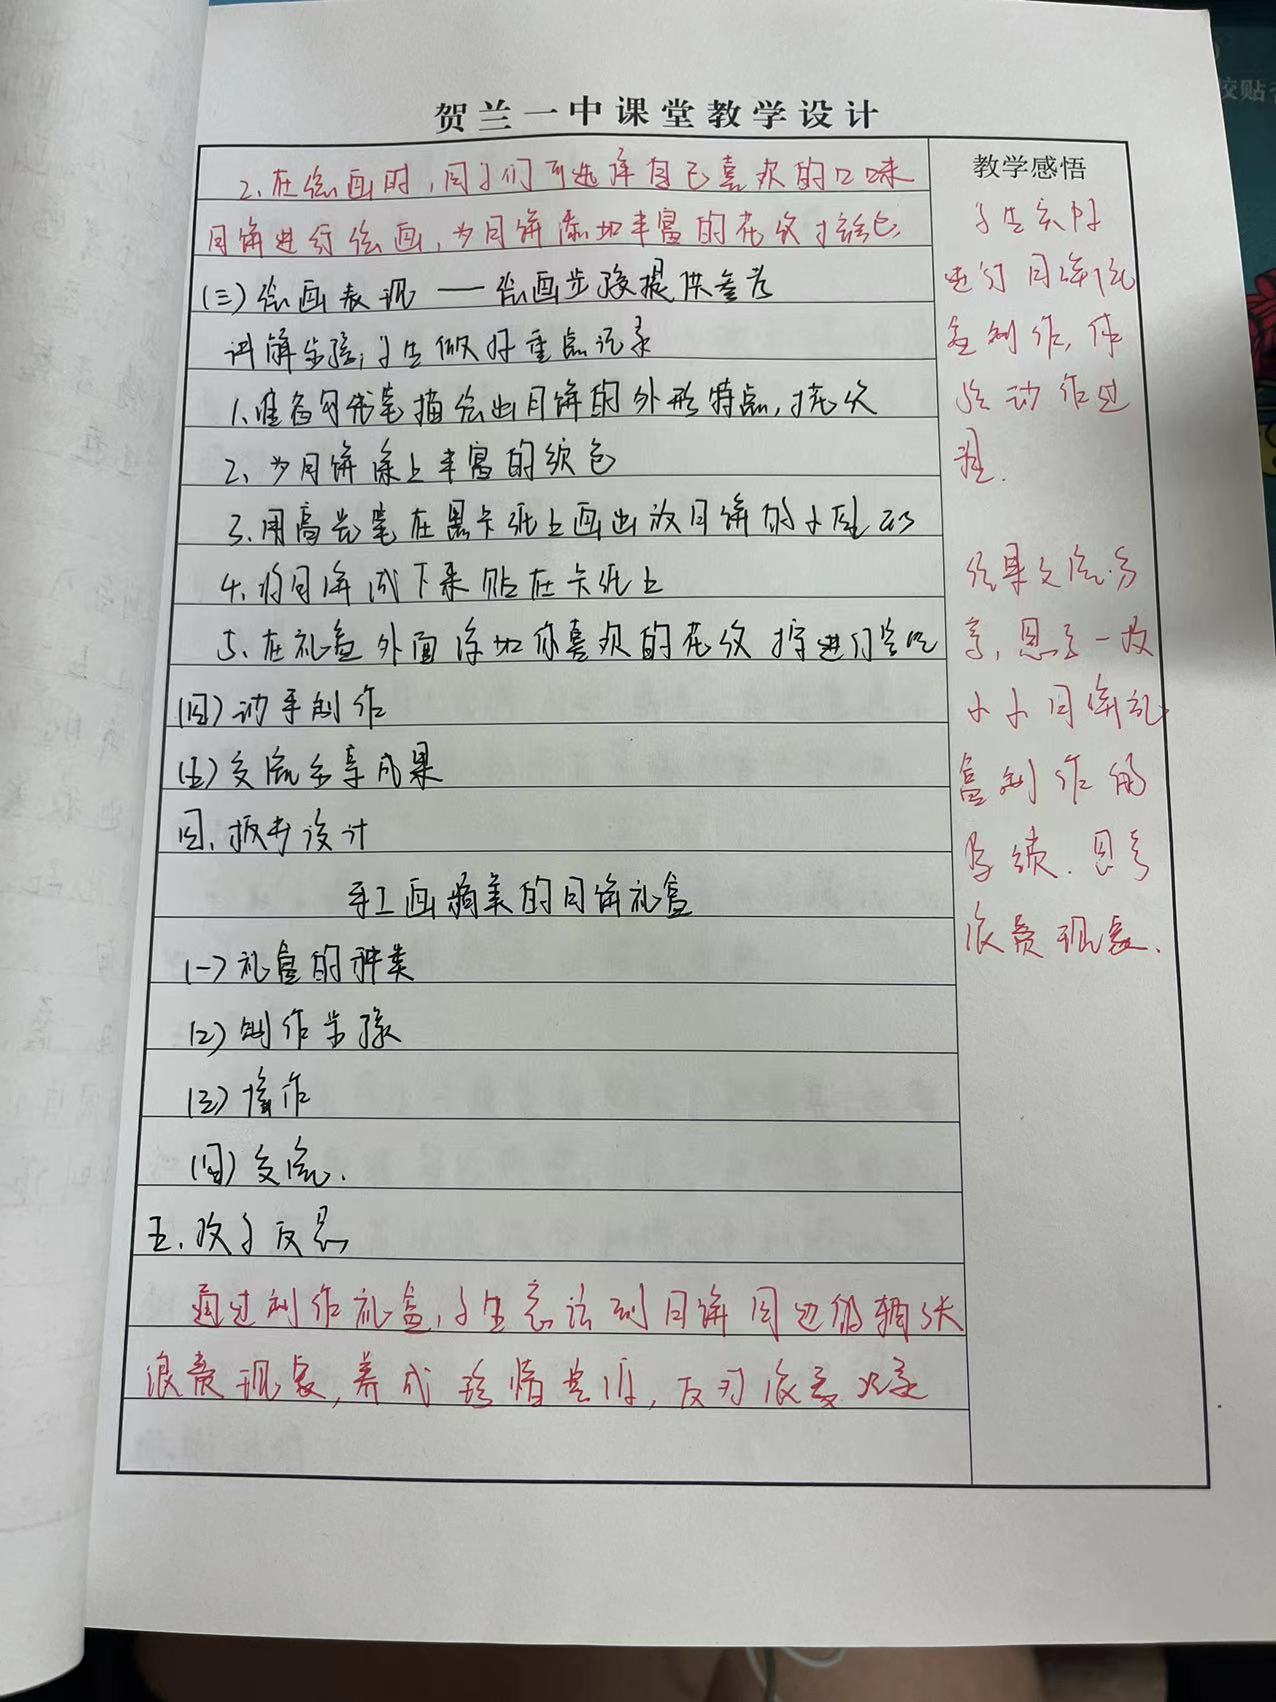 贺兰一中课堂教学设计
2、在绘画时，同学们可选择自己喜欢的口味
月饼进行绘画，为月饼添加丰富的花纹并涂色。
(三)绘画表现——绘画步骤提供参考
讲解步骤，学生做好重点记录
1、准备勾线笔描绘出月饼的外形特点，花纹
2、为月饼涂上丰富的颜色
3、用高光笔在黑卡纸上画出放月饼的小
4、将月饼 下来贴在卡纸上
5、在礼盒外面添加你喜欢的花纹并进行
(四)动手制作
(五)交流分享成果
四、板书设计
手工画 精美的月饼礼盒
(一)礼盒的种类
(二)制作步骤
(三)操作
(四)交流.
五、教学反思
通过制作礼盒，学生意识到月饼周边的铺张
浪费现象，养成珍惜 ，反对浪费
教学感悟
学生实际
进行月饼礼
盒制作，体
验动作过
程.
结果交流分
享，思考一枚
小小月饼礼
盒制作的
思考
浪费现象.